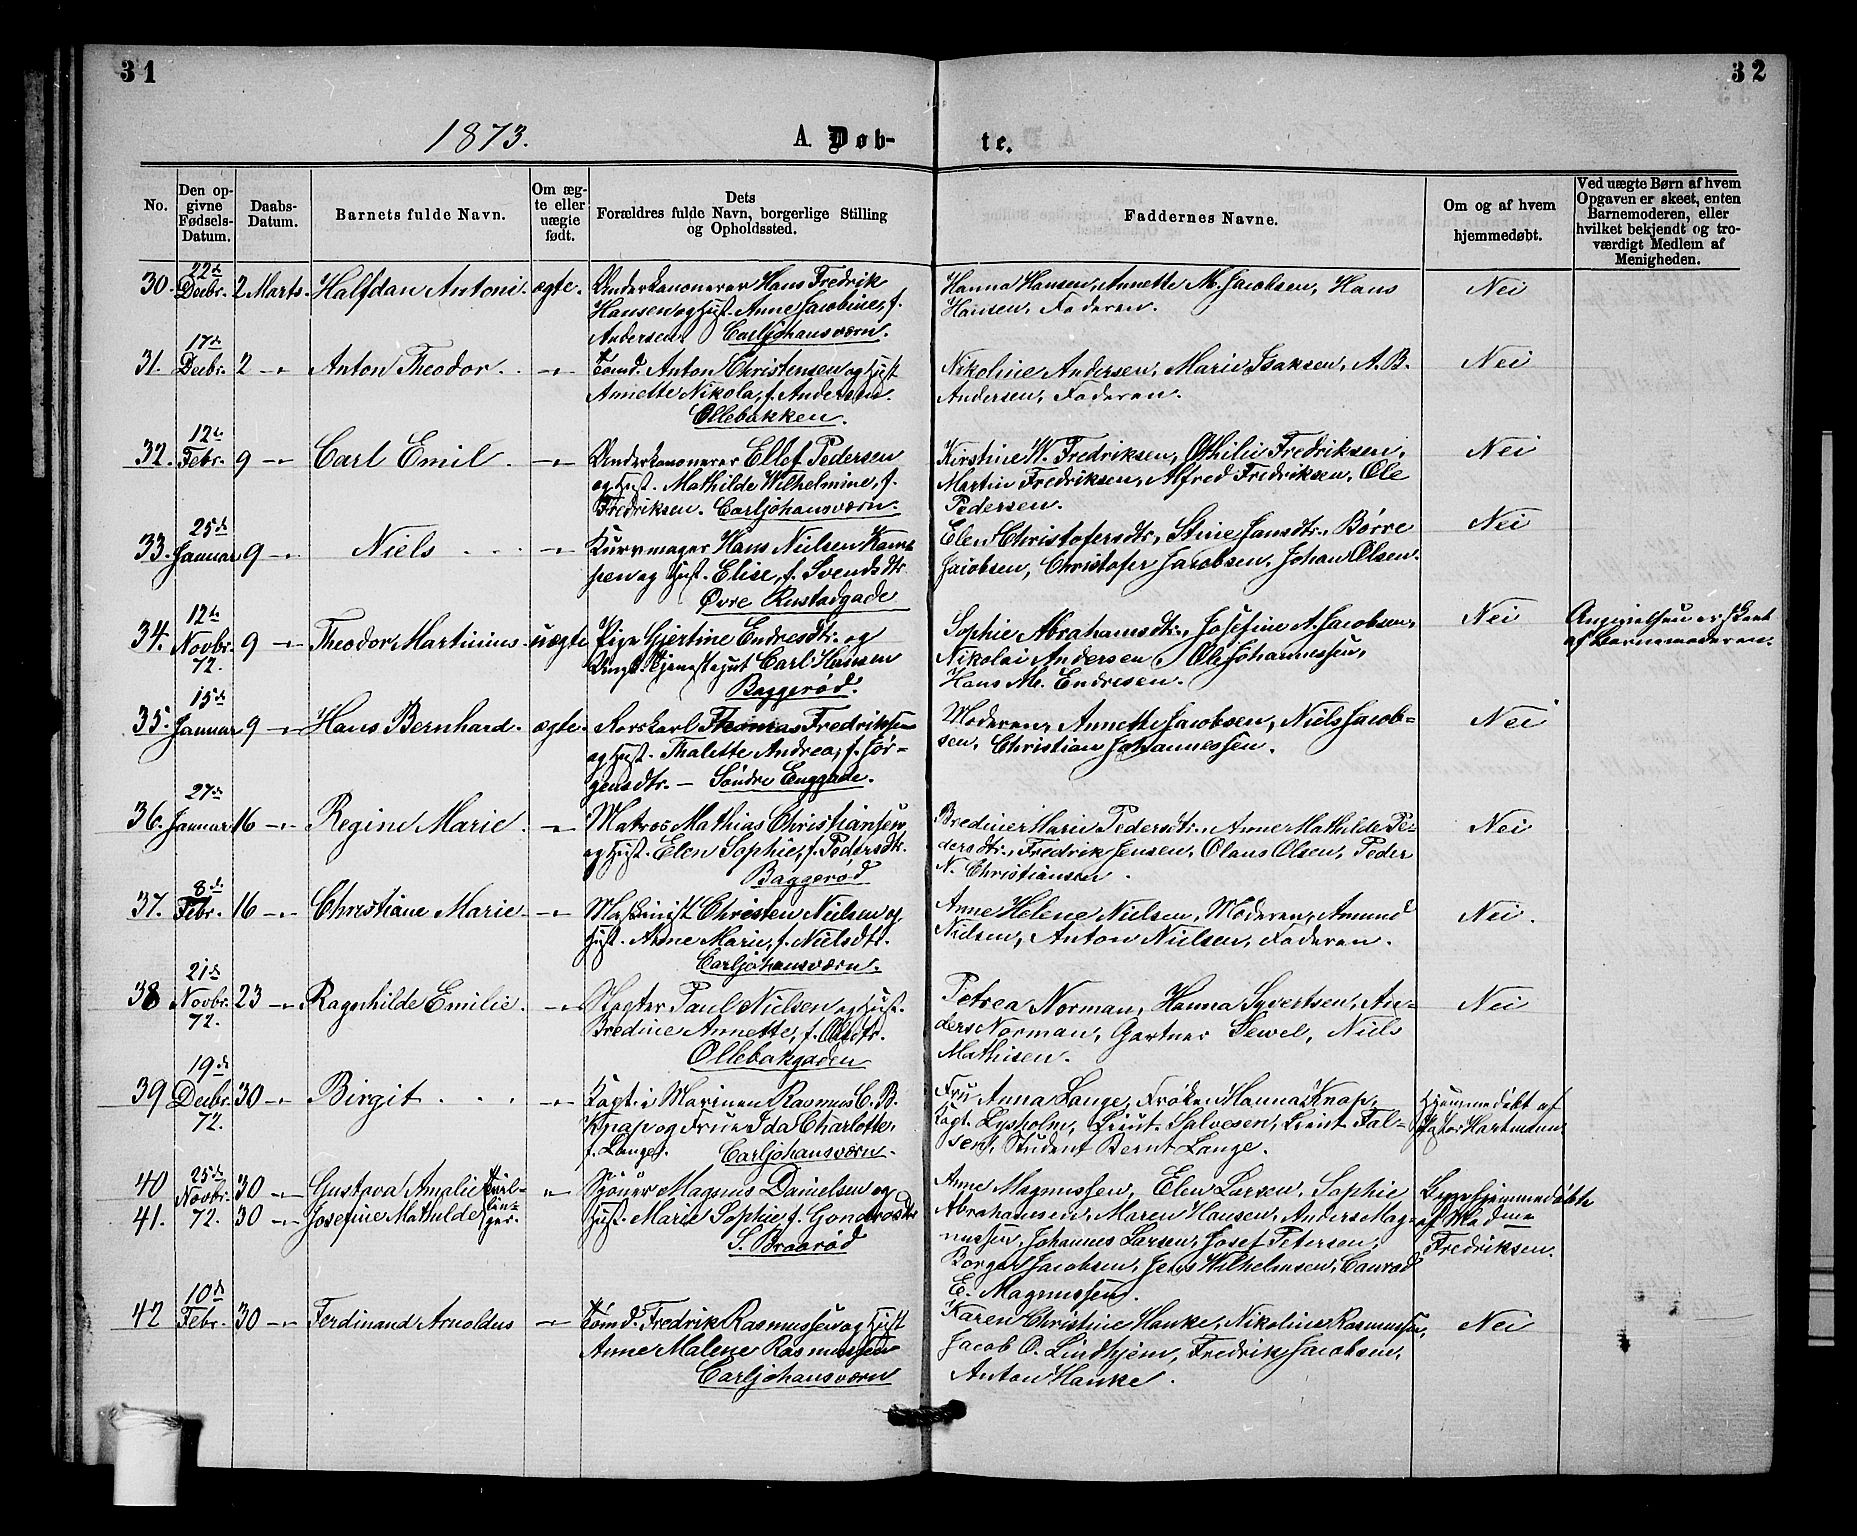 31
32
1873.
A. Døb-
te.
No.
Den op-
givne
Fødsels-
Datum.
Daabs-
Datum.
Barnets fulde Navn.
Om æg-
te eller
uægte
født.
Dets
Forældres fulde Navn, borgerlige Stilling
og Opholdssted.
Faddernes Navne.
Om og af hvem
hjemmedøbt.
Ved uægte Børn af hvem
Opgaven er skeet, enten
Barnemoderen, eller
hvilket bekjendt og tro-
værdigt Medlem af
Menigheden.
30. 22de Decbr. 2 Marts. Halfdan Antoni. ægte.
Underkanonerer Hans Fredrik
Hansen og Hust. Anne Jacobine, f.
Andersen. Carljohansværn.
Hanna Hansen, Annette M. Jacobsen, Hans
Hansen, Faderen.
Nei
31. 17de Decbr. 2 -"- Anton Theodor. -"-
Tømd. Anton Christensen og Hust
Annette Nikola, f. Andersen.
Ollebakken.
Nikoline Andersen, Marie Isaksen, A. B.
Andersen, Faderen.
Nei
32. 12te Febr. 9 -"- Carl Emil. -"-
Underkanonerer Ellef Pedersen
og Hust. Mathilde Wilhelmine, f.
Fredriksen. Carljohansværn.
Kirstine W. Fredriksen, Othilie Fredriksen,
Martin Fredriksen, Alfred Fredriksen, Ole
Pedersen.
Nei
33. 25de Januar 9 -"- Niels -"-
Kurvmager Hans Nielsen Kam-
pen og Hust. Elise, f. Svendsdtr.
Øvre Rustadgade
Elen Christofersdtr., Stine Jansdtr., Børre
Jacobsen, Christofer Jacobsen, Johan Olsen.
Nei
34. 12te Novbr. 72. 9 -"- Theodor Martinius uægte
Pige Gjertine Endresdtr. og
Ungk. Tjenestegut Carl Hansen
Baggerød.
Sophie Abrahamsdtr., Josefine A. Jacobsen,
Nikolai Andersen, Ole Johannessen,
Hans M. Endresen.
Nei
Angivelsen er skeet
af Barnemoderen.
35. 15de Januar 9 -"- Hans Bernhard. ægte.
Rorskarl Thomas Fredriksen
og Hust. Thalette Andrea, f. Jør-
gensdtr. - Søndre Enggade.
Moderen, Annette Jacobsen, Niels Jacob-
sen, Christian Johannessen.
Nei
36. 27de Januar 16 -"- Regine Marie. -"-
Matros Mathias Christiansen
og Hust. Elen Sophie, f. Pedersdtr.
Baggerød
Bredine Marie Pedersdtr., Anne Mathilde Pe-
dersdtr., Fredrik Jensen, Olaus Olsen, Peder
N. Christiansen.
Nei
37. 8de Febr. 16 -"- Christiane Marie -"-
Maskinist Christen Nielsen og
Hust. Anne Marie, f. Nielsdtr.
Carljohansværn.
Anne Helene Nielsen, Moderen, Amund
Nielsen, Anton Nielsen, Faderen.
Nei.
38 21de Novbr. 72. 23 -"- Ragnhilde Emilie. -"-
Slagter Paul Nielsen og Hust.
Bredine Annette, f. Olsdtr.
Ollebakgaden
Petrea Norman, Hanna Syvertsen, An-
ders Norman, Gartner Sewel, Niels
Mathisen.
Nei
39 19de Decbr. 72. 30 -"- Birgit -"-
Kapt. i Marinen Rasmus C. B.
Knap og Frue Ida Charlotte,
f. Lange. Carljohansværn.
Fru Anna Lange, Frøken Hanna Knap,
Kapt. Lysholm, Lieut. Salvesen, Lieut. Fal-
sen, Student Bernt Lange.
Hjemmedøbt af
Pastor Hartmann
40 25de Novbr. 72. 30 -"- Gustava Amalie Tvil-
41. 30 -"- Josefine Mathilde lin-
ger. -"-
Sjøuer Magnus Danielsen og
Hust. Marie Sophie, f.
S. Braarød
Anne Magnussen, Elen Larsen, Sophie
Abrahamsen, Maren Hansen, Anders Mag-
nussen, Johannes Larsen, Josef Peterson,
Borger Jacobsen, Jens Wilhelmsen, Conrad
E. Magnussen.
Begge hjemmedøbte
af Madme
Fredriksen.
42 10de Febr. 30 -"- Ferdinand Arnoldus -"-
Tømd. Fredrik Rasmussen og Hust
Anne Malene Rasmussen
Carljohansværn
Karen Christine Hanke, Nikoline Rasmussen,
Jacob O. Lindhjem, Fredrik Jacobsen,
Anton Hanke.
Nei